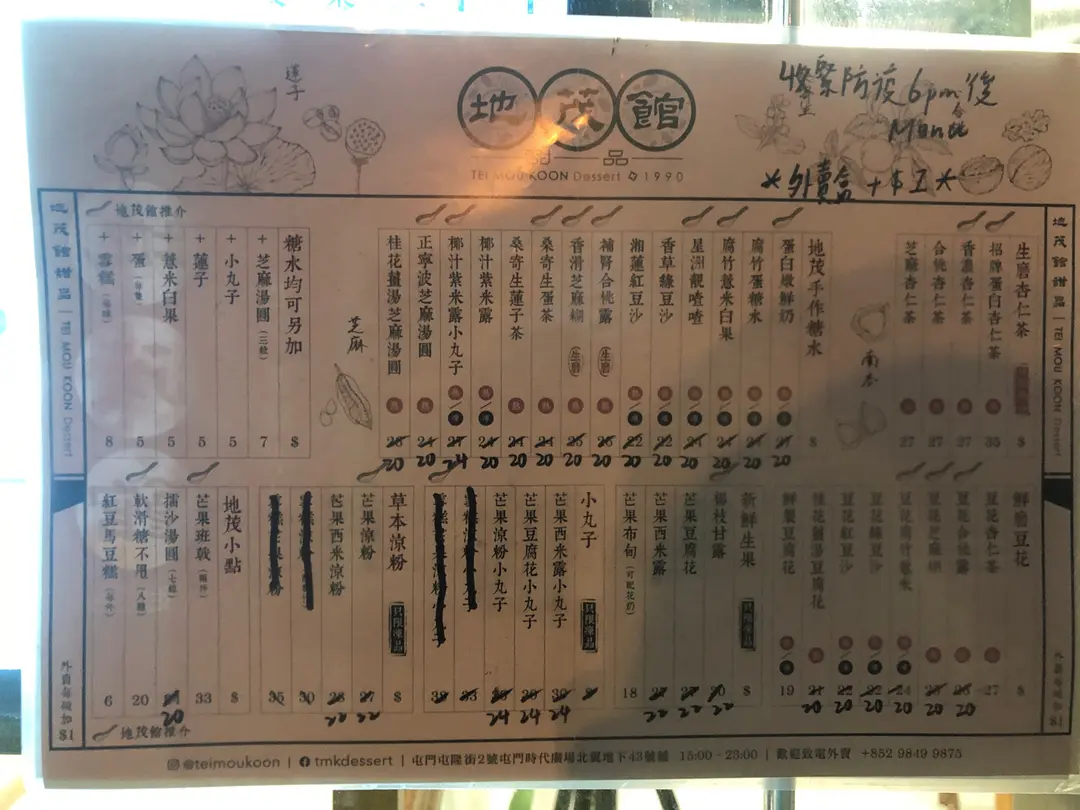 地茂館
甜品
TEI MOU KOON Dessert 1990
蓮子
防疫 6pm 後
*外賣盒 + $1*
地茂館甜品 | TEI MOU KOON Dessert
生磨杏仁茶 $
招牌蛋白杏仁茶 35
香濃杏仁茶 27
合桃杏仁茶 27
芝麻杏仁茶 27
南杏
地茂手作糖水 $
蛋白燉鮮奶 熱/凍 27 20
腐竹蛋糖水 熱/凍 20
腐竹薏米白果 熱/凍 24 20
星洲靚喳喳 熱/凍 24 20
香草綠豆沙 熱/凍 22 20
湘蓮紅豆沙 熱/凍 22 20
補腎合桃露 (生磨) 熱 26 20
香滑芝麻糊 (生磨) 熱 25 20
桑寄生蛋茶 熱 24 20
桑寄生蓮子茶 熱 24 20
椰汁紫米露 熱/凍 24 20
椰汁紫米露小丸子 熱/凍 27 24
正寧波芝麻湯圓 熱 24 20
桂花薑湯芝麻湯圓 熱 26 20
芝麻
地茂館推介
糖水均可另加 $
+ 芝麻湯圓 (三粒) 7
+ 小丸子 5
+ 蓮子 5
+ 薏米白果 5
+ 蛋 5
+ 雪糕 8
鮮磨豆花 $
豆花杏仁茶 27
豆花合桃露 26 20
豆花芝麻糊 25 20
豆花腐竹薏米 24 20
豆花綠豆沙 22 20
豆花紅豆沙 22 20
桂花薑湯豆腐花 21 20
鮮製豆腐花 19
新鮮生果 只限凍品 $
楊枝甘露 30 22
芒果豆腐花 27 22
芒果西米露 27 22
芒果布甸 (可配花奶) 18
小丸子 只限凍品 $
芒果西米露小丸子 30 24
芒果豆腐花小丸子 24
芒果涼粉小丸子 24
草本涼粉 只限凍品 $
芒果涼粉 27 22
芒果西米涼粉 28 22
地茂小點 $
芒果班戟 (兩件) 33
擂沙湯圓 (七粒) 20
軟滑糖不甩 (八粒) 20
紅豆馬豆糕 (每件) 6
外賣每碗加$1
外賣每碗加$1
地茂館推介
@teimoukoon | tmkdessert | 屯門屯隆街2號屯門時代廣場北翼地下43號舖 15:00 - 23:00 | 歡迎致電外賣 +852 9849 9875